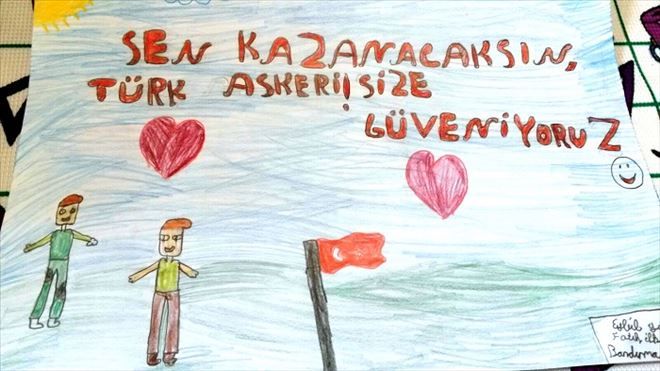 SEN KAZANACAKSIN,
TÜRK ASKERİ!SİZE
GÜVENİYORUZ
Eylül
Fatih ilk
Bandırma